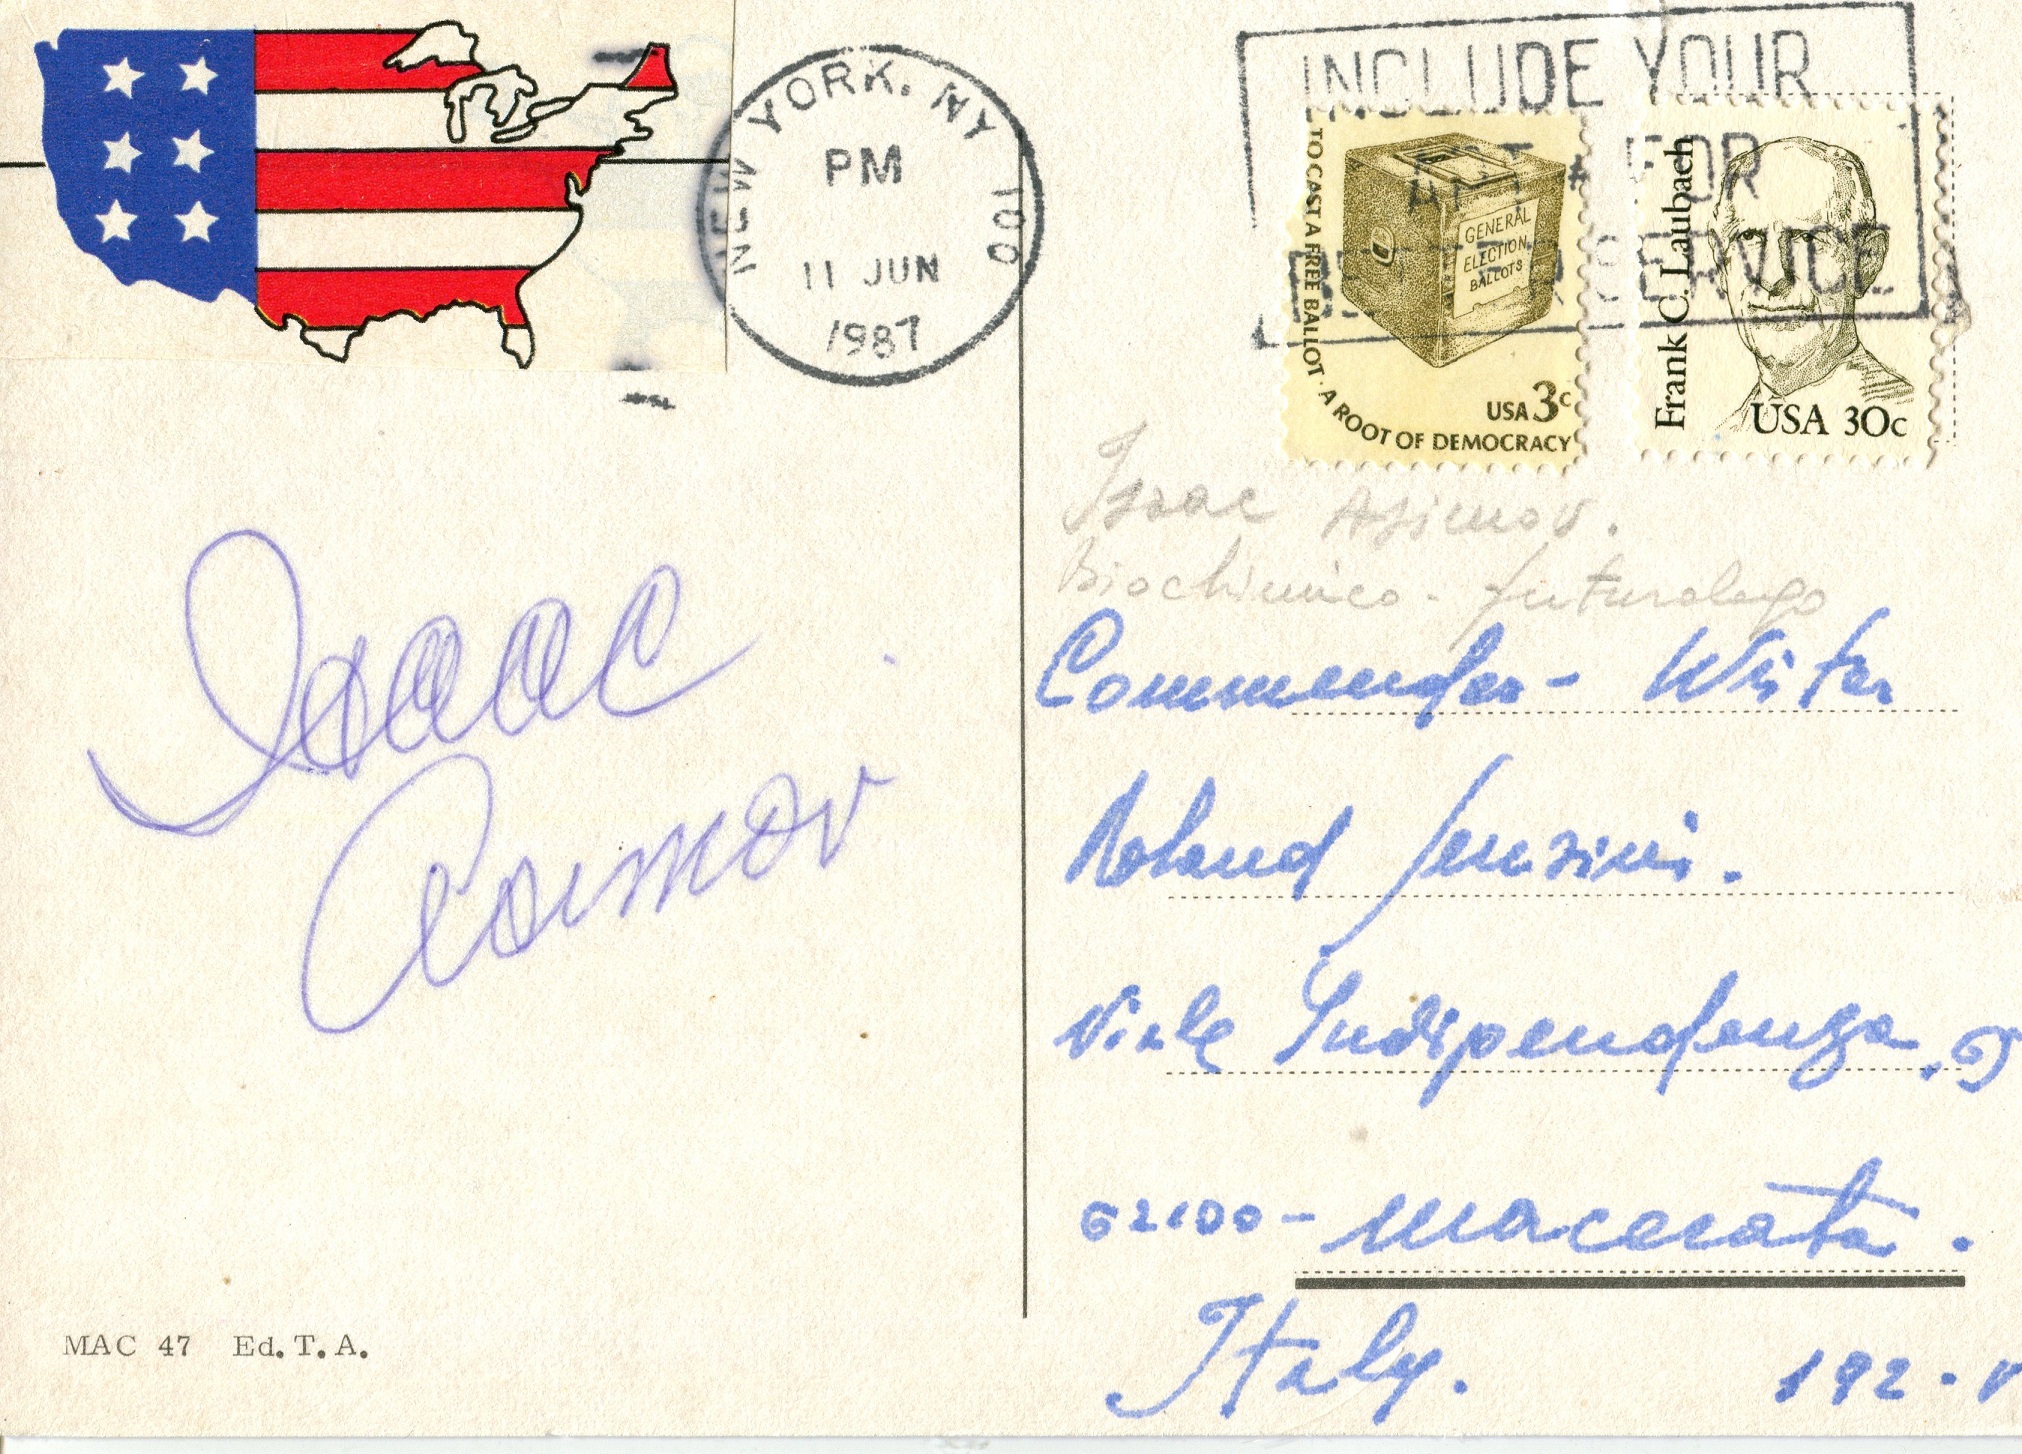 NEW YORK, NY 100
PM
11 JUN
1987
INCLUDE YOUR
APT # FOR
SERVICE
TO CAST A FREE BALLOT · A ROOT OF DEMOCRACY
GENERAL
ELECTION
BALLOTS
USA 3c
Frank C. Laubach
USA 30c
Isaac Asimov.
Biochimico - futurologo
Isaac
Asimov
Commender - Wister
Roland
Viale Indipendenza,
62100 - Macerata.
Italy.
192 -
MAC 47 Ed. T. A.